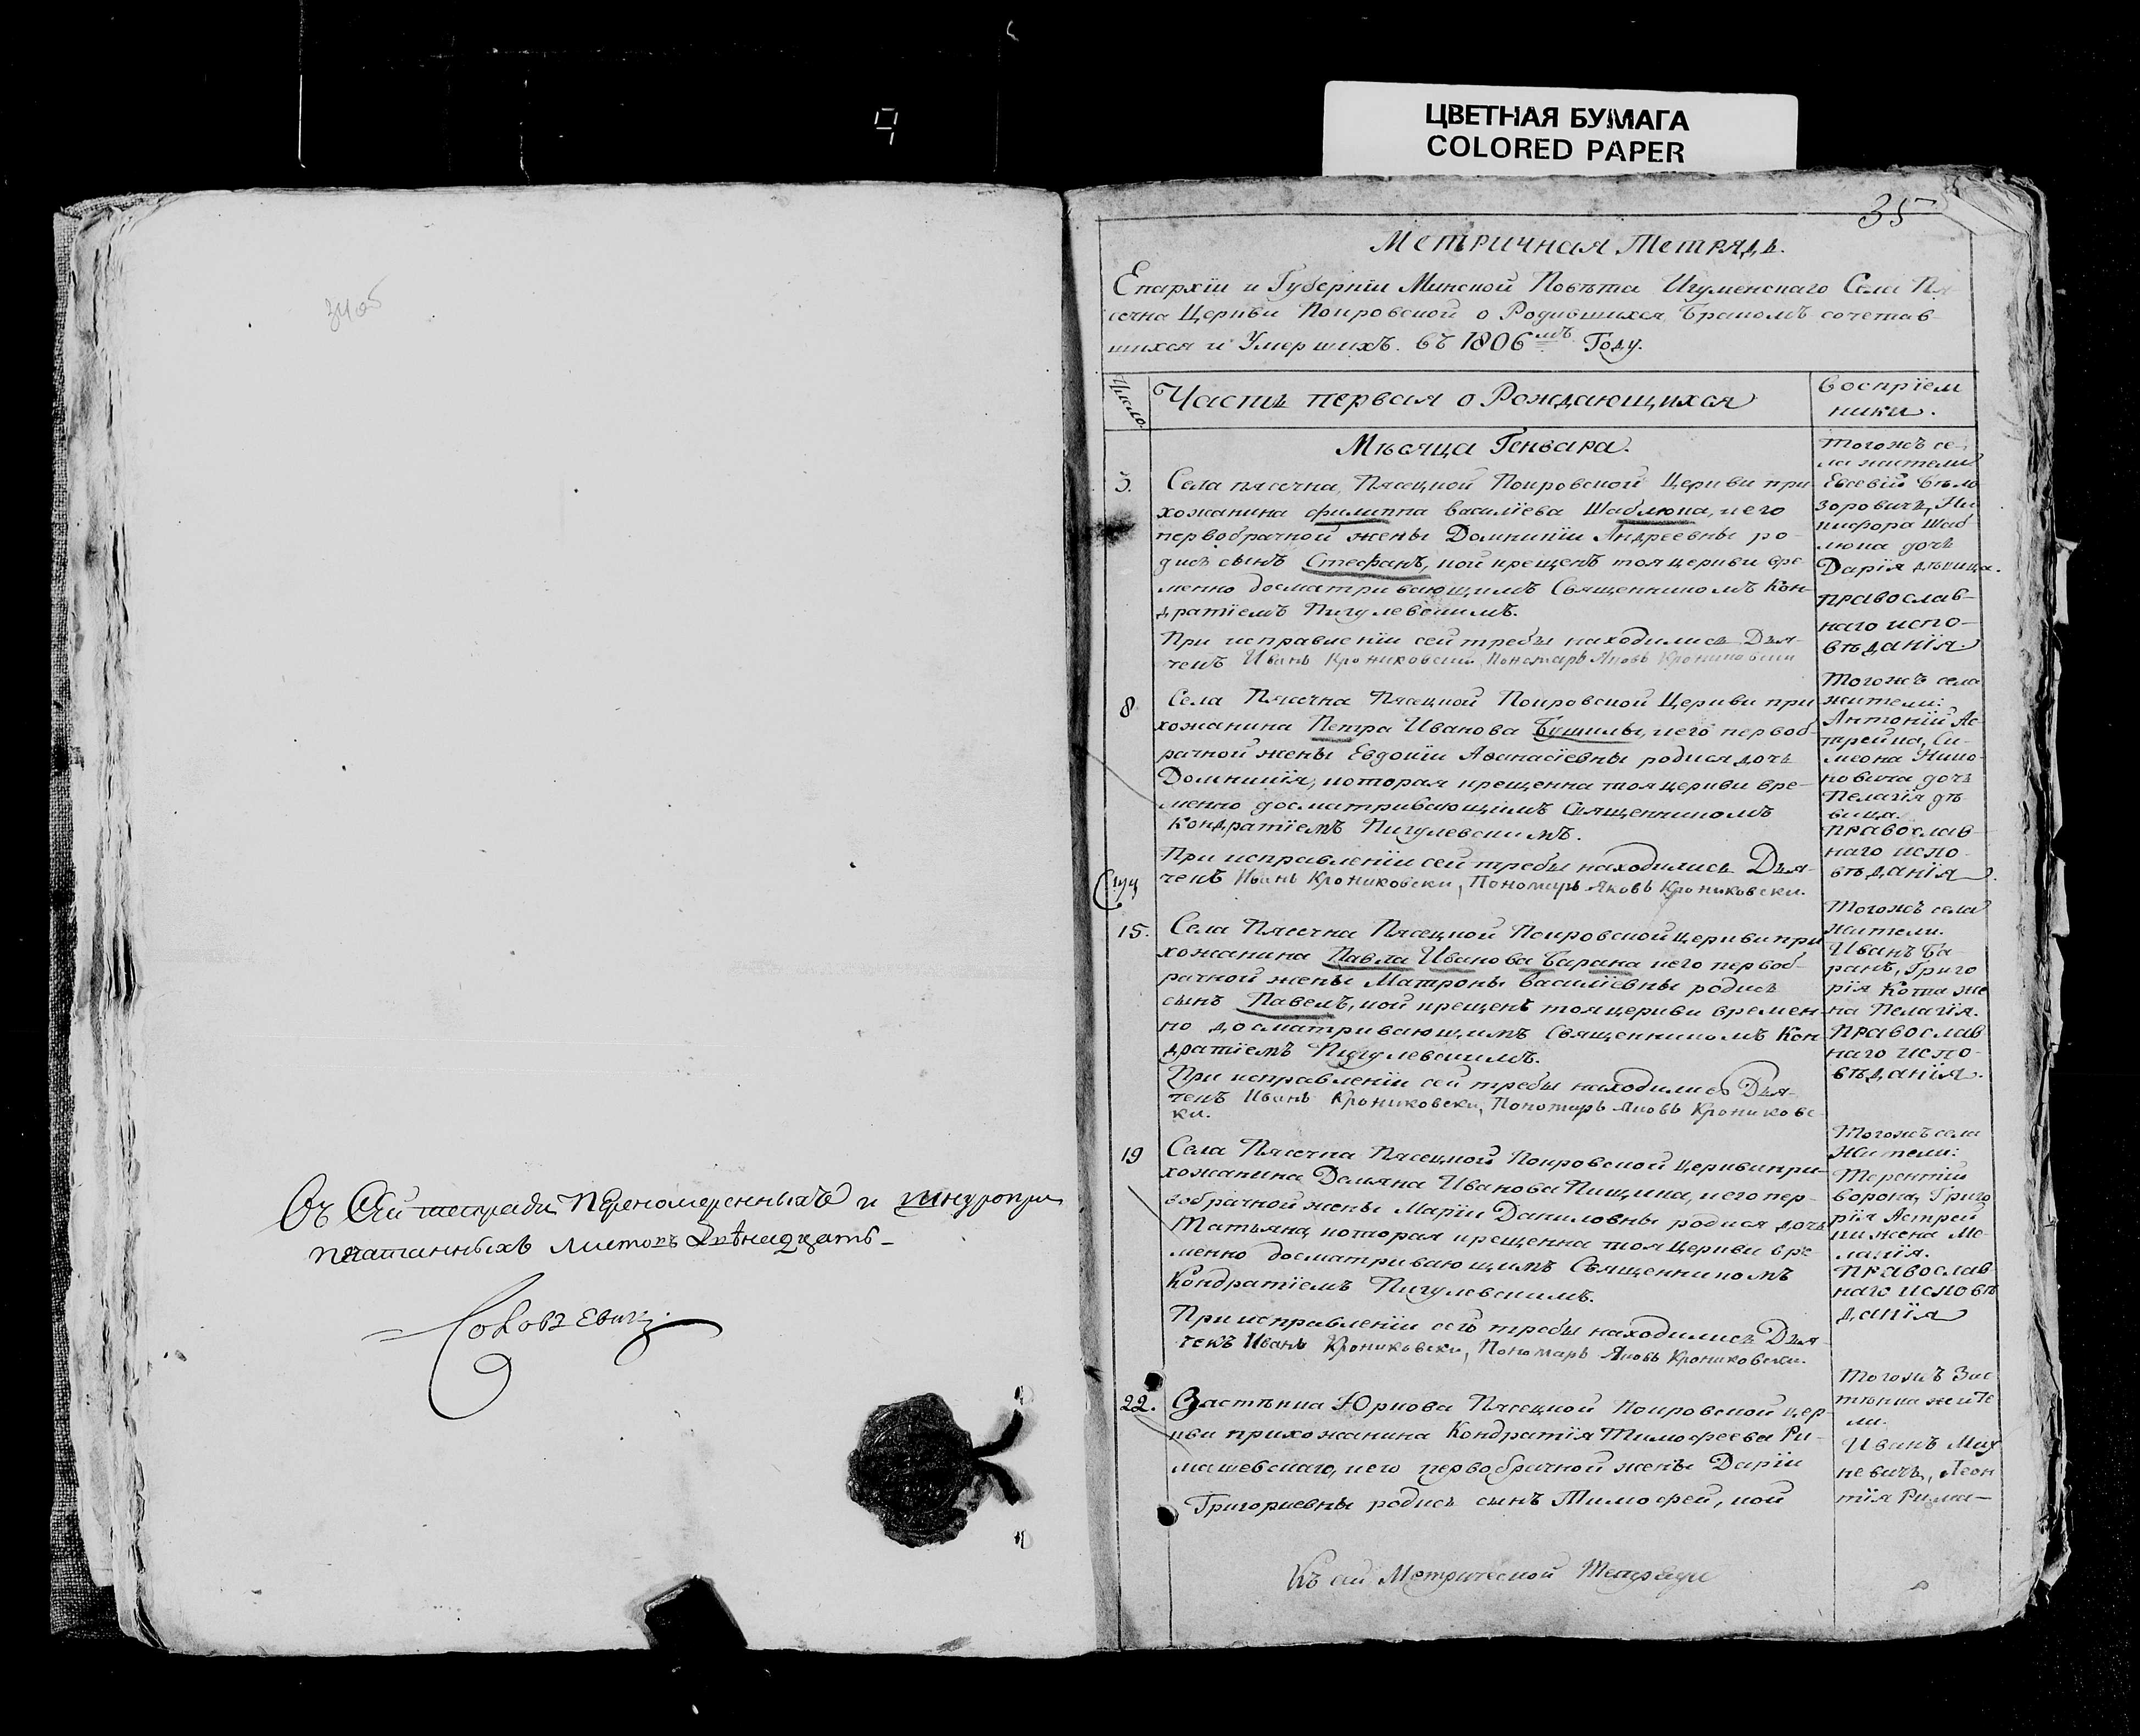 ЦВЕТНАЯ БУМАГА
COLORED PAPER
34об
Въ Сей тетради Перенумеренныхъ и шнуропри
печатанныхъ листовъ двѣнадцать
35
Метричная Тетрадь.
Епархіи и Губерніи Минской Повѣта Игуменскаго Села Пя
сечна Церкви Покровской о Родившихся, Бракомъ сочетав-
шихся и Умершихъ. въ 1806мъ Году.
Число
Часть первая о Рождающихся
Воспріем
ники.
Мѣсяца Генваря.
Села пясечна, Пясецкой Покровской Церкви при
хожанина филиппа василіева Шаблюка, и его
первобрачной жены Домникіи Андреевны ро-
дисъ сынъ Стефанъ, кой крещенъ тоя церкви вре
менно досматривающимъ Священникомъ Кон-
дратіемъ Пигулевскимъ.
При исправленіи сей требы находились Дья-
чекъ Иванъ Крониковски, Пономаръ Яковъ Крониковски
тогожъ се-
ла жители
Евсевій Бѣло
зоровичъ, Ни
кифора Шаб
люка дочь
Дарія дѣвица.
православ-
наго испо-
вѣданія
8
Села Пясечна Пясецкой Покровской Церкви при
хожанина Петра Иванова Бушилы, и его первоб-
рачной жены Евдокіи Аѳанасіевны родися дочь
Домникія, которая крещенна тоя церкви вре-
менно досматривающимъ Священникомъ
Кондратіемъ Пигулевскимъ.
При исправленіи сей требы находились Дья-
чекъ Иванъ Крониковски, Пономаръ Яковъ Крониковски.
Тогожъ села
жители:
Антоній Ас
трейка, Си-
меона Нико-
новича дочь
Пелагія дѣ-
вица.
православ-
наго испо-
вѣданія
15.
Села Пясечна Пясецкой Покровской церкви при
хожанина Павла Иванова Барана и его первоб-
рачной жены Матроны василіевны родисъ
сынъ Павелъ, кой крещенъ тоя церкви времен-
но досматривающимъ Священникомъ Кон-
дратіемъ Пигулевскимъ.
При исправленіи сей требы находились Дья-
чекъ Иванъ Крониковски, Пономаръ Яковъ Крониковс-
ки.
Тогожъ села
жители.
Иванъ Ба-
ранъ, Григо
рія Кота же
на Пелагія.
православ
наго испо-
вѣданія.
19
Села Пясечна Пясецкой Покровской церкви при-
хожанина Демяна Иванова Пищика, и его пер-
вобрачной жены Маріи Даниловны родися дочь
Татьяна, которая крещенна тоя Церкви вре
менно досматривающимъ Священникомъ
Кондратіемъ Пигулевскимъ.
При исправленіи сей требы находились Дья-
чекъ Иванъ Крониковски, Пономаръ Яковъ Крониковски.
Тогожъ села
Жители:
Терентій
ворона, Григо
рія Астрей
ки жена Ме-
ланія.
православ
наго исповѣ
данія
22.
Застѣнка Юркова Пясецкой Покровской цер-
кви прихожанина Кондратія Тимофеева Ри-
машевскаго, и его первобрачной жены Даріи
Григориевны родисъ сынъ Тимофей, кой
Тогожъ Зас
тѣнка жите
ли.
Иванъ Мих
невичъ, Леон
тія Рима-
Къ сей Метрической Тетради